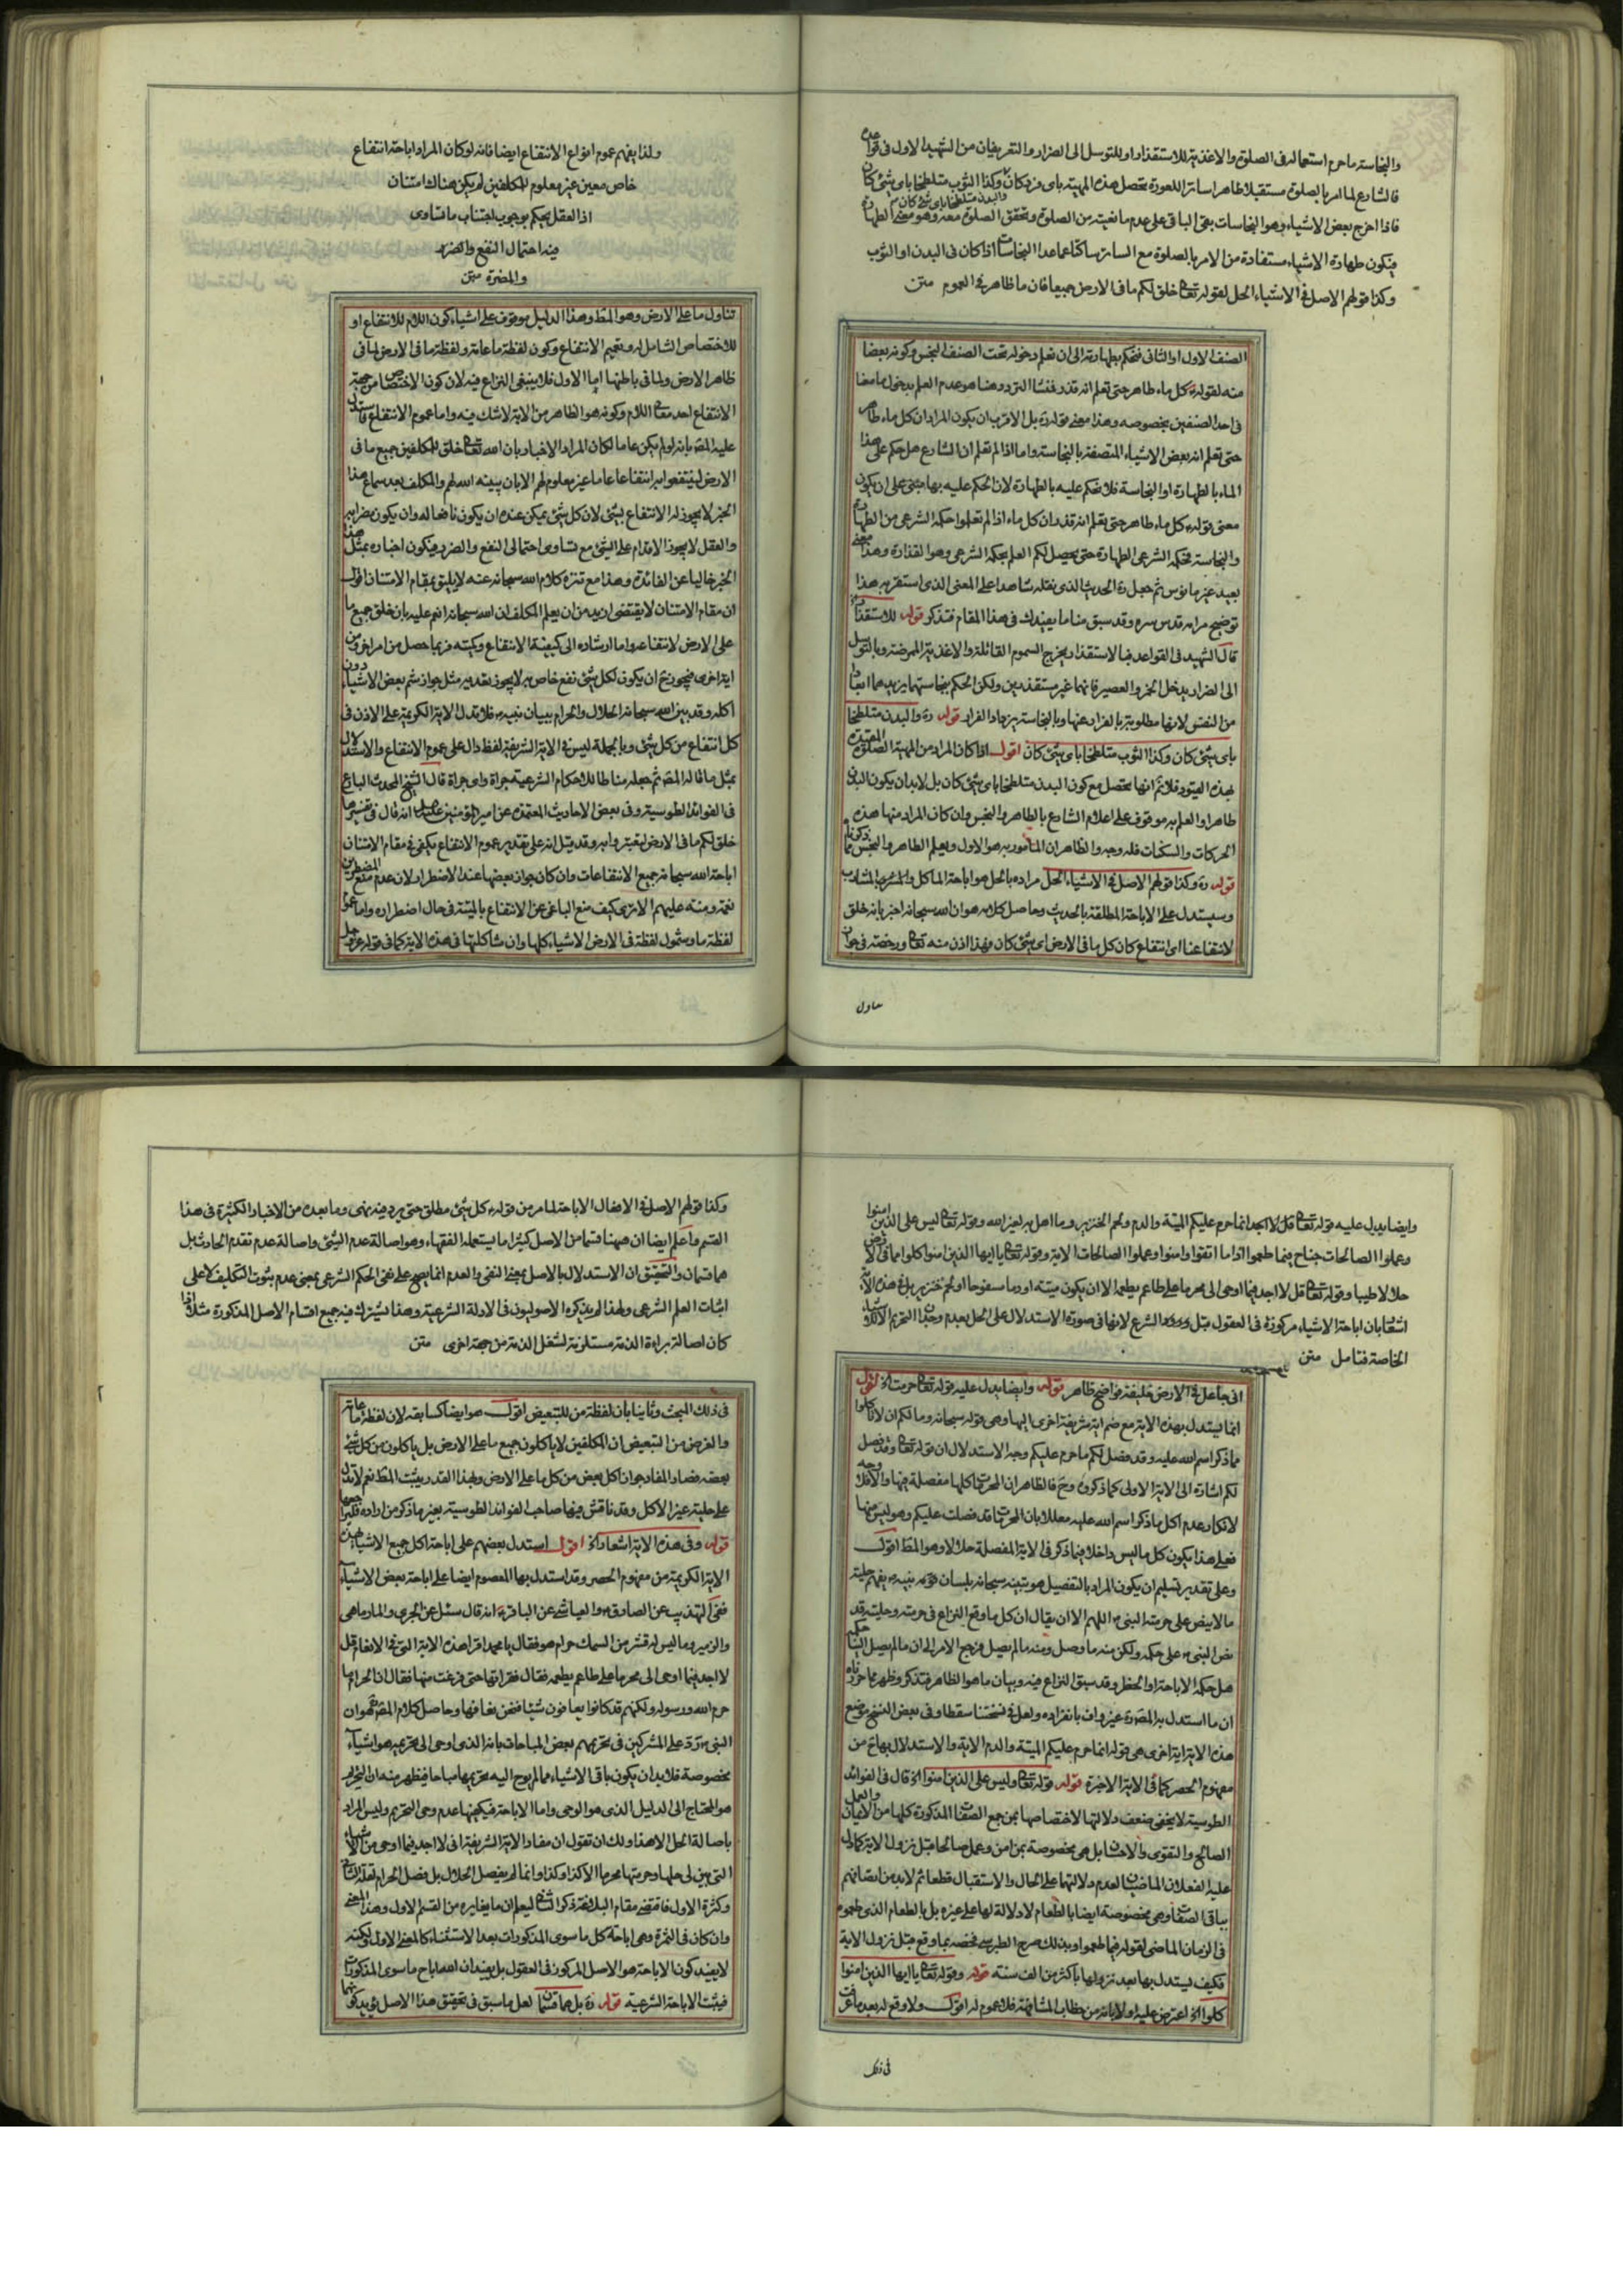 والنجاسة ما حرم استعماله فى الصلوة والاغذية للاستقذار او للتوسل الى الضرار والتعريفان من الشهيد الاول فى قواعده
فالشارع لما امر بالصلوة مستقبلا طاهرا ساترا للعورة تحصل هذه المهية باى فرد كان وكذا الثوب متلطخا باى شئ كان
والبدن متلطخا باى شئ كان
فاذا اخرج بعض الاشياء وهو النجاسات بقى الباقى على عدم مانعيته من الصلوة وتحقق الصلوة معه وهو معنى الطهارة
فيكون طهارة الاشياء مستفادة من الامر بالصلوة مع الساتر ساكتا عما عدا النجاسات اذا كان فى البدن او الثوب
وكذا قولهم الاصل فى الاشياء الحل لقوله تعالى خلق لكم ما فى الارض جميعا فان ما ظاهر فى العموم متن
الصنف الاول او الثانى فنحكم بطهارته الى ان نعلم دخوله تحت الصنف النجس وكونه بعضا
منه لقوله ع كل ماء طاهر حتى تعلم انه قذر فمنشا التردد هنا هو عدم العلم بدخول ماء معنا
فى احد الصنفين بخصوصه وهذا معنى قوله ره بل الاقرب ان يكون المراد ان كل ماء طاهر
حتى تعلم انه بعض الاشياء المتصفة بالنجاسة واما اذا لم تعلم ان الشارع هل حكم على هذا
الماء بالطهارة او النجاسة فلا نحكم عليه بالطهارة لان الحكم عليه بها مبنى على ان يكون
معنى قوله ع كل ماء طاهر حتى يعلم انه قذر ان كل ماء اذا لم تعلموا حكمه الشرعى من الطهارة
والنجاسة فحكمه الشرعى الطهارة حتى يحصل لكم العلم بحكمه الشرعى وهو القذارة وهذا معنى
بعيد غير مانوس ثم جعل ره الحديث الذى نقله شاهدا على المعنى الذى استقر به هذا
توضيح مرامه قدس سره وقد سبق منا ما يفيدك فى هذا المقام فتذكر قوله للاستقذار
قال الشهيد فى القواعد فبالاستقذار يخرج السموم القاتلة والاغذية الممرضة وبالتوسل
الى الضرار يدخل الخمر والعصير فانهما غير مستقذرين ولكن الحكم بنجاستهما يزيدهما ابعادا
من النفس لانها مطلوبة بالفرار عنها وبالنجاسة يزداد الفرار قوله ره والبدن متلطخا
باى شئ كان وكذا الثوب متلطخا باى شئ كان اقول اذا كان المراد من المهية الصلوة المعتبرة
بهذه القيود فلا ثم انها تحصل مع كون البدن متلطخا باى شئ كان بل لابد ان يكون البدن
طاهرا والعلم به موقوف على اعلام الشارع بالطاهر والنجس وان كان المراد منها هذه
الحركات والسكنات فله وجه والظاهر ان المأمور به هو الاول ويعلم الطاهر والنجس مما ذكرنا
قوله ره وكذا قولهم الاصل فى الاشياء الحل مراده بالحل هو اباحة الماكل والمشرب المشارب
وسيستدل على الاباحة المطلقة بالحديث وحاصل كلامه هو ان الله سبحانه اخبر بانه خلق
لانتفاعنا اى انتفاع كان كل ما فى الارض اى شئ كان وهذا اذن منه تعالى ورخصة فى جواز
تناول
ولذا يفهم عموم انواع الانتفاع ايضا فانه لو كان المراد اباحة انتفاع
خاص معين غير معلوم للمكلفين لم يكن هناك امتنان
اذ العقل يحكم بوجوب اجتناب ما تساوى
فيه احتمال النفع والضرر
والمضرة متن
تناول ما على الارض وهو المط وهذا الدليل موقوف على اشياء كون اللام للانتفاع او
للاختصاص الشامل له وتعميم الانتفاع وكون لفظة ما عامة ولفظة ما فى الارض لما فى
ظاهر الارض ولما فى باطنها اما الاول فلا ينبغى النزاع فيه لان كون الاختصاص من جهة
الانتفاع احد معانى اللام وكونه هو الظاهر من الاية لا شك فيه واما عموم الانتفاع فاستدل
عليه المص بانه لو لم يكن عاما لكان المراد الاخبار بان الله تعالى خلق للمكلفين جميع ما فى
الارض لينتفعوا به انتفاعا عاما غير معلوم لهم الا بان يبينه الله لهم والمكلف بعد سماع هذا
الخبر لا يجوز له الانتفاع بشئ لان كل شئ يمكن عنده ان يكون نافعا له وان يكون مضرا به
والعقل لا يجوز الاقدام على الشئ مع تساوى احتمالى النفع والضرر فيكون اخباره بمثل هذا
الخبر خاليا عن الفائدة وهذا مع تنزه كلام الله سبحانه عنه لا يليق بمقام الامتنان اقول
ان مقام الامتنان لا يقتضى ازيد من ان يعلم المكلف ان الله سبحانه انعم عليه بان خلق جميع ما
على الارض لانتفاعه واما ارشاده الى كيفية الانتفاع وكميته فربما حصل من امراض ومن
اية اخرى فيجوز ح ان يكون لكل شئ نفع خاص به لا يجوز تعديه مثل جواز شم بعض الاشياء دون
اكله وقد بين الله سبحانه الحلال والحرام ببيان نبيه فلا تدل الاية الكريمة على الاذن فى
كل انتفاع من كل شئ وبالجملة ليس فى الاية الشريفة لفظ دال على عموم الانتفاع والاستدلال
بمثل ما قاله المص ثم جعله مناطا للاحكام الشرعية جرأة واى جرأة قال الشيخ المحدث البارع
فى الفوائد الطوسية وفى بعض الاحاديث المعتمدة عن امير المؤمنين عليه السلام انه قال فى تفسير ما
خلق لكم ما فى الارض لتعتبروا به وقد يقل انه على تقدير عموم الانتفاع يكفى فى مقام الامتنان
اباحة الله سبحانه جميع الانتفاعات وان كان جواز بعضها عند الاضطرار لان عدم منع المضطرين
نعمة ومنة عليهم الا ترى كيف منع الباغى عن الانتفاع بالميتة فى حال اضطراره واما عموم
لفظة ما وشمول لفظة فى الارض الاشياء كلها وان شاكلتها فى هذه الاية كما فى قوله عز وجل
وايضا يدل عليه قوله تعالى قل لا اجد انما حرم عليكم الميتة والدم ولحم الخنزير وما اهل به لغير الله وقوله تعالى ليس على الذين امنوا
وعملوا الصالحات جناح فيما طعموا اذا ما اتقوا وامنوا وعملوا الصالحات الاية وقوله تعالى يا ايها الذين امنوا كلوا مما فى الارض
حلالا طيبا وقوله تعالى قل لا اجد فيما اوحى الى محرما على طاعم يطعمه الا ان يكون ميتة او دما مسفوحا او لحم خنزير بل فى هذه الاية
اشعار بان اباحة الاشياء مركوزة فى العقول قبل ورود الشرع لانها فى صورة الاستدلال على الحل بعدم وجدان التحريم الا للاشياء
الخاصة فتامل متن
انى جاعل فى الارض خليفة فواضح ظاهر قوله وايضا يدل عليه قوله تعالى حرمت الخ اقول
انما يستدل بهذه الاية مع ضم اية شريفة اخرى اليها وهى قوله سبحانه وما لكم ان لا تاكلوا
مما ذكر اسم الله عليه وقد فصل لكم ما حرم عليكم وجه الاستدلال ان قوله تعالى وقد فصل
لكم اشارة الى الاية الاولى كما ذكروه وح فالظاهر ان المحرمات كلها مفصلة فيها والا فلا وجه
لانكار عدم اكل ما ذكر اسم الله عليه معللا بان المحرمات قد فصلت عليكم وهو ليس منها
فعلى هذا يكون كل ما ليس داخلا فيما ذكر فى الاية المفصلة حلالا وهو المط اقول
وعلى تقدير تسليم ان يكون المراد بالتفصيل هو تبيينه سبحانه بلسان نبيه يفهم حلية
ما لا ينص على حرمته النبى اللهم الا ان يقال ان كل ما وقع النزاع فى حرمته وحليته قد
نص النبى على حكمه ولكن منه ما وصل ومنه ما لم يصل فرجع الامر الى ان ما لم يصل الينا حكمه
هل حكمه الاباحة او الحظر وقد سبق النزاع فيه وبيان ما هو الظاهر فتذكر وظهر مما حررناه
ان ما استدل به المص ره غير واف بانفراده ولعل فى نسختنا سقطا وفى بعض النسخ موضع
هذه الاية اية اخرى هى قوله انما حرم عليكم الميتة والدم الاية والاستدلال بها ح من
مفهوم الحصر كما فى الاية الاخرة قوله قوله تعالى وليس على الذين امنوا الخ قال فى الفوائد
الطوسية لا يخفى ضعف دلالتها لاختصاصها بمن جمع الصفات المذكورة كلها من الايمان والعمل
الصالح والتقوى والاحسان بل هى مخصوصة بمن امن وعمل صالحا قبل نزول الاية كما دل
عليه الفعلان الماضيان لعدم دلالتها على الحال والاستقبال قطعا ثم لابد من اتصافهم
بباقى الصفات وهى مخصوصة ايضا بالطعام لا دلالة لها على غيره بل بالطعام الذى طعموه
فى الزمان الماضى لقوله فيما طعموا وبذلك صرح الطبرسى فخصه بما وقع قبل نزول الاية
فكيف يستدل بها بعد نزولها باكثر من الف سنة قوله وقوله تعالى يا ايها الذين امنوا
كلوا الخ اعترض عليه اولا بانه من خطاب المشافهة فلا عموم له اقول ولا وقع له بعد ما عرفت
فى ذلك
وكذا قولهم الاصل فى الافعال الاباحة لما مر من قوله ع كل شئ مطلق حتى يرد فيه نهى وما بعده من الاخبار الكثيرة فى هذا
القسم واعلم ايضا ان هيهنا قسما من الاصل كثيرا ما يستعمله الفقهاء وهو اصالة عدم الشئ واصالة عدم تقدم الحادث بل
هما قسمان والتحقيق ان الاستدلال بالاصل بمعنى النفى والعدم انما يصح على نفى الحكم الشرعى بمعنى عدم ثبوت التكليف لا على
اثبات العلم الشرعى ولهذا لم يذكره الاصوليون فى الادلة الشرعية وهذا يشترك فيه جميع اقسام الاصل المذكورة مثلا اذا
كان اصالة براءة الذمة مستلزمة لشغل الذمة من جهة اخرى متن
فى ذلك المبحث وثانيا بان لفظة من للتبعيض اقول هو ايضا كسابقه لان لفظة ما عامة
والغرض من التبعيض ان المكلفين لا ياكلون جميع ما على الارض بل ياكلون من كل شئ
بعضه فصار المفاد جواز اكل بعض من كل ما على الارض وبهذا القدر يثبت المط نعم لا تدل
على حلية غير الاكل وقد ناقش فيها صاحب الفوائد الطوسية بغير ما ذكر من اراده فليراجعها
قوله وفى هذه الاية اشعار الخ اقول استدل بعضهم على اباحة اكل جميع الاشياء بهذه
الاية الكريمة من مفهوم الحصر وقد استدل بها المعصوم ايضا على اباحة بعض الاشياء
ففى التهذيب عن الصادق والعياشى عن الباقر انه قال سئل عن الجرى والمارماهى
والزمير وما ليس له قشر من السمك حرام هو فقال يا محمد اقرا هذه الاية التى فى الانعام قل
لا اجد فيما اوحى الى محرما على طاعم يطعمه فقال فقراتها حتى فرغت منها فقال انا الحرام ما
حرم الله ورسوله ولكنهم قد كانوا يعافون شيئا فنحن نعافها وحاصل كلام المص هو ان
النبى رد على المشركين فى تحريمهم بعض المباحات بانه الذى اوحى الى تحريمه هو اشياء
مخصوصة فلابد ان يكون باقى الاشياء مما لم يوح اليه تحريمها مباحا فيظهر منه ان التحريم
هو المحتاج الى الدليل الذى هو الوحى واما الاباحة فيكفيها عدم وحى التحريم وليس المراد
باصالة الحل الا هذا ولك ان تقول ان مفاد الاية الشريفة انى لا اجد فيما اوحى من الاشياء
التى بين لى حلها وحرمتها محرما الا كذا وكذا وانما لم يفصل الحلال بل فصل الحرام لقلة الثانى
وكثرة الاول فاقتضى مقام البلاغة ذكر الثانى ليعلم ان ما يغايره من القسم الاول وهذا المعنى
وان كان فى الثمرة وهى اباحة كل ما سوى المذكورات بعد الاستثناء كالمعنى الاول ولكنه
لا يفيد كون الاباحة هو الاصل المركوز فى العقول بل يفيد ان الله اباح ما سوى المذكورات
فيثبت الاباحة الشرعية قوله ره بل هما قسمان لعل ما سبق فى تحقيق هذا الاصل يؤيد كونهما